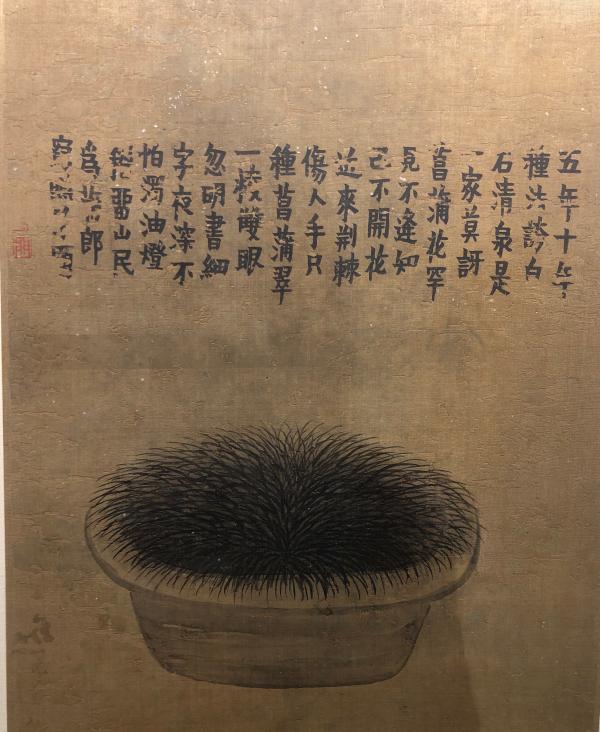 五年十年
種法誇白
石清泉是
一家莫訝
菖蒲花罕
見不逢知
己不開花
近來荆棘
傷人手只
種菖蒲翠
一雙眼
忽明書細
字夜深不
怕濁油燈
留山民
為郎